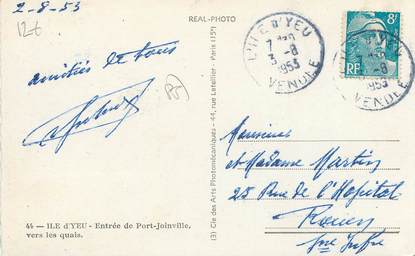 2-8-53
12-6
REAL-PHOTO
amitiés de tous
L'ILE D'YEU
7 H30
3 -8
1953
VENDÉE
8F
RF
L'ILE D'YEU
-8
1953
VENDÉE
(3) Cie des Arts Photomécaniques - 44, rue Letellier - Paris (15e)
Monsieur
et Madame Martin
25 Rue de l'Hopital
Rouen
Sne Infre
44 — ILE d'YEU - Entrée de Port-Joinville,
vers les quais.